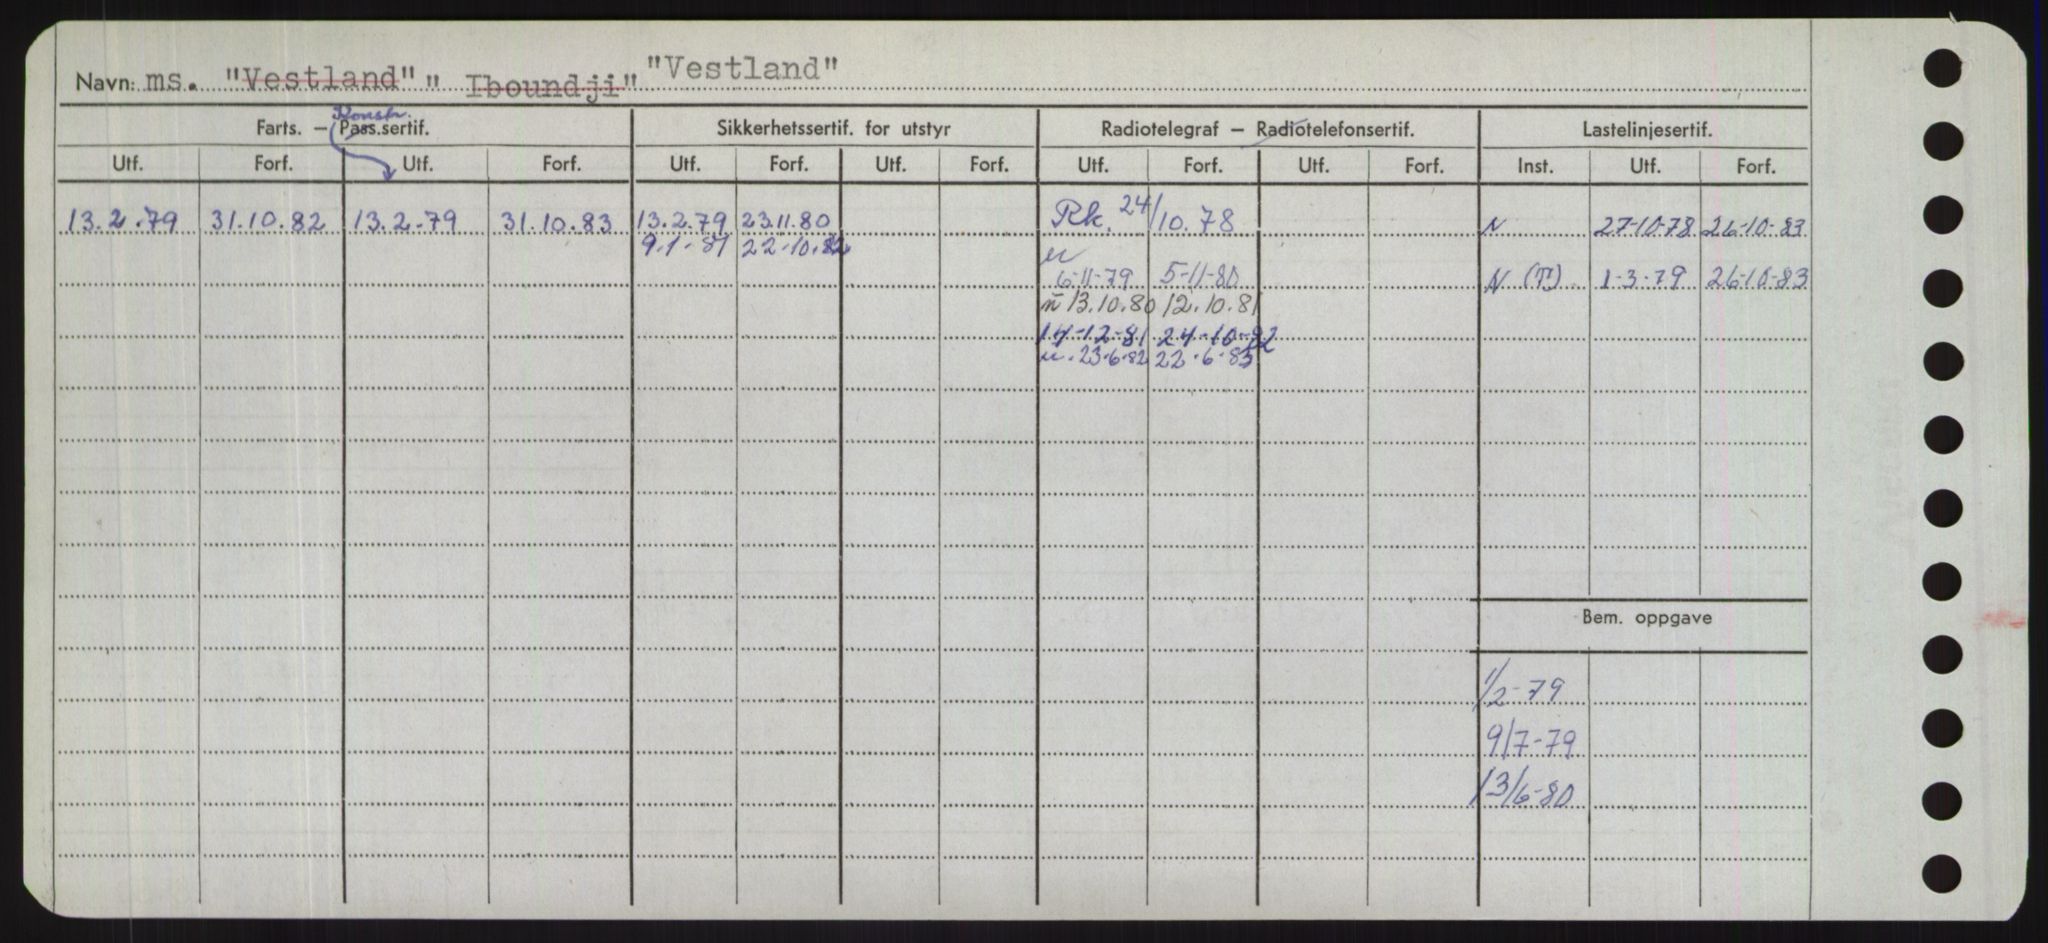 Navn: ms. "Vestland" " Iboundji" "Vestland"
Konstr.
Farts. – Pass.sertif. Sikkerhetssertif. for utstyr Radiotelegraf – Radiotelefonsertif. Lastelinjesertif.
Utf. Forf. Utf. Forf. Utf. Forf. Utf. Forf. Utf. Forf. Utf. Forf. Inst. Utf. Forf.
13.2.79 31.10.82 13.2.79 31.10.83 13.2.79 23.11.80 Rk. 24/10.78 N 27-10-78 26-10-83
9.1-81 22-10.82
6-11-79 5-11-80 N (T) 1-3-79 26-10-83
13.10.80 12.10.81
14-12-81 24-10-82
23-6-82 22-6-83
Bem. oppgave
1/2-79
9/7-79
13/6-80